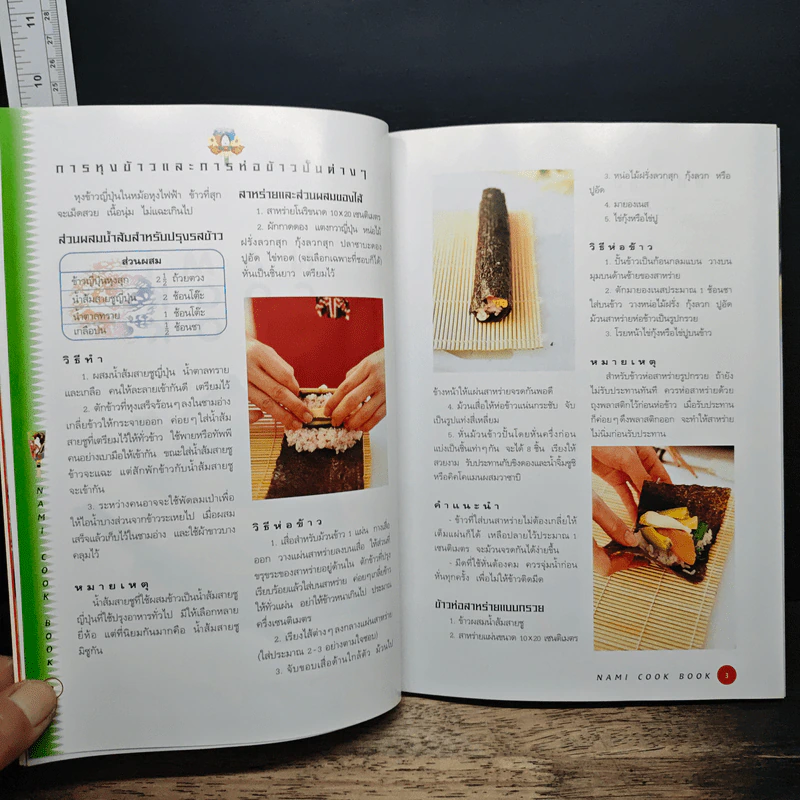 11
10
การหุงข้าวและการห่อข้าวปั้นต่างๆ
หุงข้าวญี่ปุ่นในหม้อหุงไฟฟ้า ข้าวที่สุก
จะเม็ดสวย เนื้อนุ่ม ไม่แฉะเกินไป
ส่วนผสมน้ำส้มสำหรับปรุงรสข้าว
ส่วนผสม
ข้าวญี่ปุ่นหุงสุก 2 1/2 ถ้วยตวง
น้ำส้มสายชูญี่ปุ่น 2 ช้อนโต๊ะ
น้ำตาลทราย 1 ช้อนโต๊ะ
เกลือป่น ช้อนชา
วิธีทำ
1. ผสมน้ำส้มสายชูญี่ปุ่น น้ำตาลทราย
และเกลือ คนให้ละลายเข้ากันดี เตรียมไว้
2. ตักข้าวที่หุงเสร็จร้อนๆ ลงในชามอ่าง
เกลี่ยข้าวให้กระจายออก ค่อยๆ ใส่น้ำส้ม
สายชูที่เตรียมไว้ให้ทั่วข้าว ใช้พายหรือทัพพี
คนอย่างเบามือให้เข้ากัน ขณะใส่น้ำส้มสายชู
ข้าวจะแฉะ แต่สักพักข้าวกับน้ำส้มสายชู
จะเข้ากัน
3. ระหว่างคนอาจจะใช้พัดลมเป่าเพื่อ
ให้ไอน้ำบางส่วนจากข้าวระเหยไป เมื่อผสม
เสร็จแล้วเก็บไว้ในชามอ่าง และใช้ผ้าขาวบาง
คลุมไว้
หมายเหตุ
น้ำส้มสายชูที่ใช้ผสมข้าวเป็นน้ำส้มสายชู
ญี่ปุ่นที่ใช้ปรุงอาหารทั่วไป มีให้เลือกหลาย
ยี่ห้อ แต่ที่นิยมกันมากคือ น้ำส้มสายชู
มิซูกัน
NAMI COOK BOOK
สาหร่ายและส่วนผสมของไส้
1. สาหร่ายโนริขนาด 10x20 เซนติเมตร
2. ผักกาดดอง แตงกวาญี่ปุ่น หน่อไม้
ฝรั่งลวกสุก กุ้งลวกสุก ปลาซาบะดอง
ปูอัด ไข่ทอด (จะเลือกเฉพาะที่ชอบก็ได้)
หั่นเป็นชิ้นยาว เตรียมไว้
วิธีห่อข้าว
1. เสื่อสำหรับม้วนข้าว 1 แผ่น กางเสื่อ
ออก วางแผ่นสาหร่ายลงบนเสื่อ ให้ส่วนที่
ขรุขระของสาหร่ายอยู่ด้านใน ตักข้าวที่ปรุง
เรียบร้อยแล้วใส่บนสาหร่าย ค่อยๆ เกลี่ยข้าว
ให้ทั่วแผ่น อย่าให้ข้าวหนาเกินไป ประมาณ
ครึ่งเซนติเมตร
2. เรียงไส้ต่างๆ ลงกลางแผ่นสาหร่าย
(ใส่ประมาณ 2-3 อย่างตามใจชอบ)
3. จับขอบเสื่อด้านใกล้ตัว ม้วนไป
ข้างหน้าให้แผ่นสาหร่ายจรดกันพอดี
4. ม้วนเสื่อให้ห่อข้าวแน่นกระชับ จับ
เป็นรูปแท่งสี่เหลี่ยม
5. หั่นม้วนข้าวปั้นโดยหั่นครึ่งก่อน
แบ่งเป็นชิ้นเท่าๆ กัน จะได้ 8 ชิ้น เรียงให้
สวยงาม รับประทานกับขิงดองและน้ำจิ้มซูชิ
หรือคิคโคแมนผสมวาซาบิ
คำแนะนำ
- ข้าวที่ใส่บนสาหร่ายไม่ต้องเกลี่ยให้
เต็มแผ่นก็ได้ เหลือปลายไว้ประมาณ 1
เซนติเมตร จะม้วนจรดกันได้ง่ายขึ้น
- มีดที่ใช้หั่นต้องคม ควรจุ่มน้ำก่อน
หั่นทุกครั้ง เพื่อไม่ให้ข้าวติดมีด
ข้าวห่อสาหร่ายแบบกรวย
1. ข้าวผสมน้ำส้มสายชู
2. สาหร่ายแผ่นขนาด 10x20 เซนติเมตร
3. หน่อไม้ฝรั่งลวกสุก กุ้งลวก หรือ
ปูอัด
4. มายองเนส
5. ไข่กุ้งหรือไข่ปู
วิธีห่อข้าว
1. ปั้นข้าวเป็นก้อนกลมแบน วางบน
มุมบนด้านซ้ายของสาหร่าย
2. ตักมายองเนสประมาณ 1 ช้อนชา
ใส่บนข้าว วางหน่อไม้ฝรั่ง กุ้งลวก ปูอัด
ม้วนสาหร่ายห่อข้าวเป็นรูปกรวย
3. โรยหน้าไข่กุ้งหรือไข่ปูบนข้าว
หมายเหตุ
สำหรับข้าวห่อสาหร่ายรูปกรวย ถ้ายัง
ไม่รับประทานทันที ควรห่อสาหร่ายด้วย
ถุงพลาสติกไว้ก่อนห่อข้าว เมื่อรับประทาน
ก็ค่อยๆ ดึงพลาสติกออก จะทำให้สาหร่าย
ไม่นิ่มก่อนรับประทาน
NAMI COOK BOOK 3